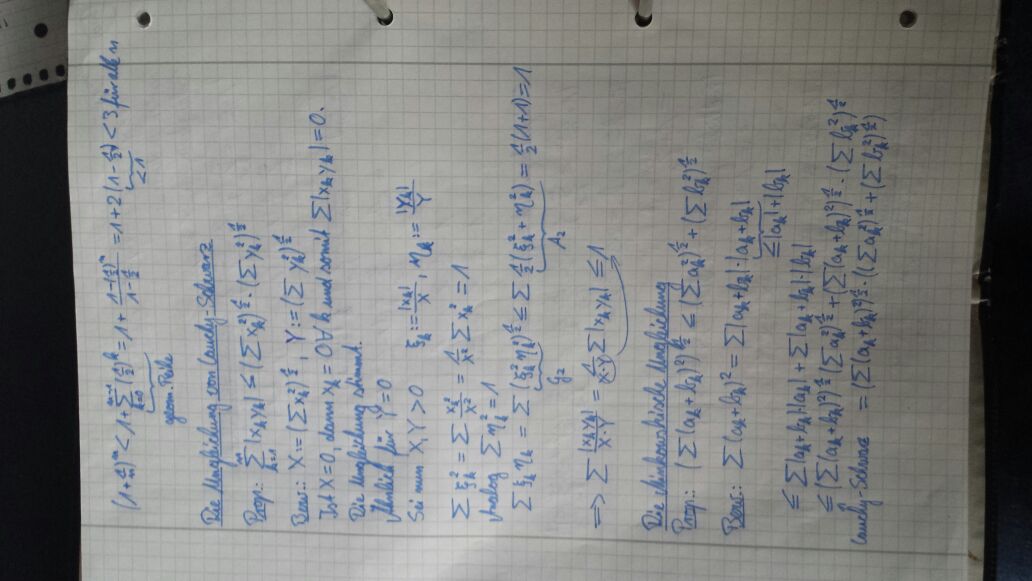 (1+1/n)^n < 1+∑_{k=0}^{n-1}(1/2)^k = 1+ (1-(1/2)^n)/(1-1/2) = 1+2(1-1/2^n) < 3 für alle n
geom. Reihe
<1
Die Ungleichung von Cauchy-Schwarz
Prop.: ∑_{k=1}^n |x_k y_k| ≤ (∑ x_k²)^{1/2} · (∑ y_k²)^{1/2}
Bew.: X := (∑ x_k²)^{1/2}, Y := (∑ y_k²)^{1/2}
Ist X=0, dann x_k = 0 ∀ k und somit ∑|x_k y_k| = 0.
Die Ungleichung stimmt.
Ähnlich für Y=0
Sei nun X,Y > 0 ξ_k := |x_k|/X, η_k := |y_k|/Y
∑ ξ_k² = ∑ x_k²/X² = 1/X² ∑ x_k² = 1
Analog ∑ η_k² = 1
∑ ξ_k η_k = ∑ (ξ_k² η_k²)^{1/2} ≤ ∑ 1/2 (ξ_k² + η_k²) = 1/2 (1+1) = 1
G_2 A_2
=> ∑ |x_k y_k|/(X·Y) = 1/(X·Y) ∑ |x_k y_k| ≤ 1
Die Minkowskische Ungleichung
Prop.: (∑ (a_k + b_k)²)^{1/2} ≤ (∑ a_k²)^{1/2} + (∑ b_k²)^{1/2}
Bew.: ∑ (a_k + b_k)² = ∑ |a_k + b_k|·|a_k + b_k|
≤ |a_k| + |b_k|
≤ ∑ |a_k + b_k|·|a_k| + ∑ |a_k + b_k|·|b_k|
≤ (∑ (a_k + b_k)²)^{1/2} (∑ a_k²)^{1/2} + (∑ (a_k + b_k)²)^{1/2} · (∑ b_k²)^{1/2}
Cauchy-Schwarz = (∑ (a_k + b_k)²)^{1/2} · ((∑ a_k²)^{1/2} + (∑ b_k²)^{1/2})